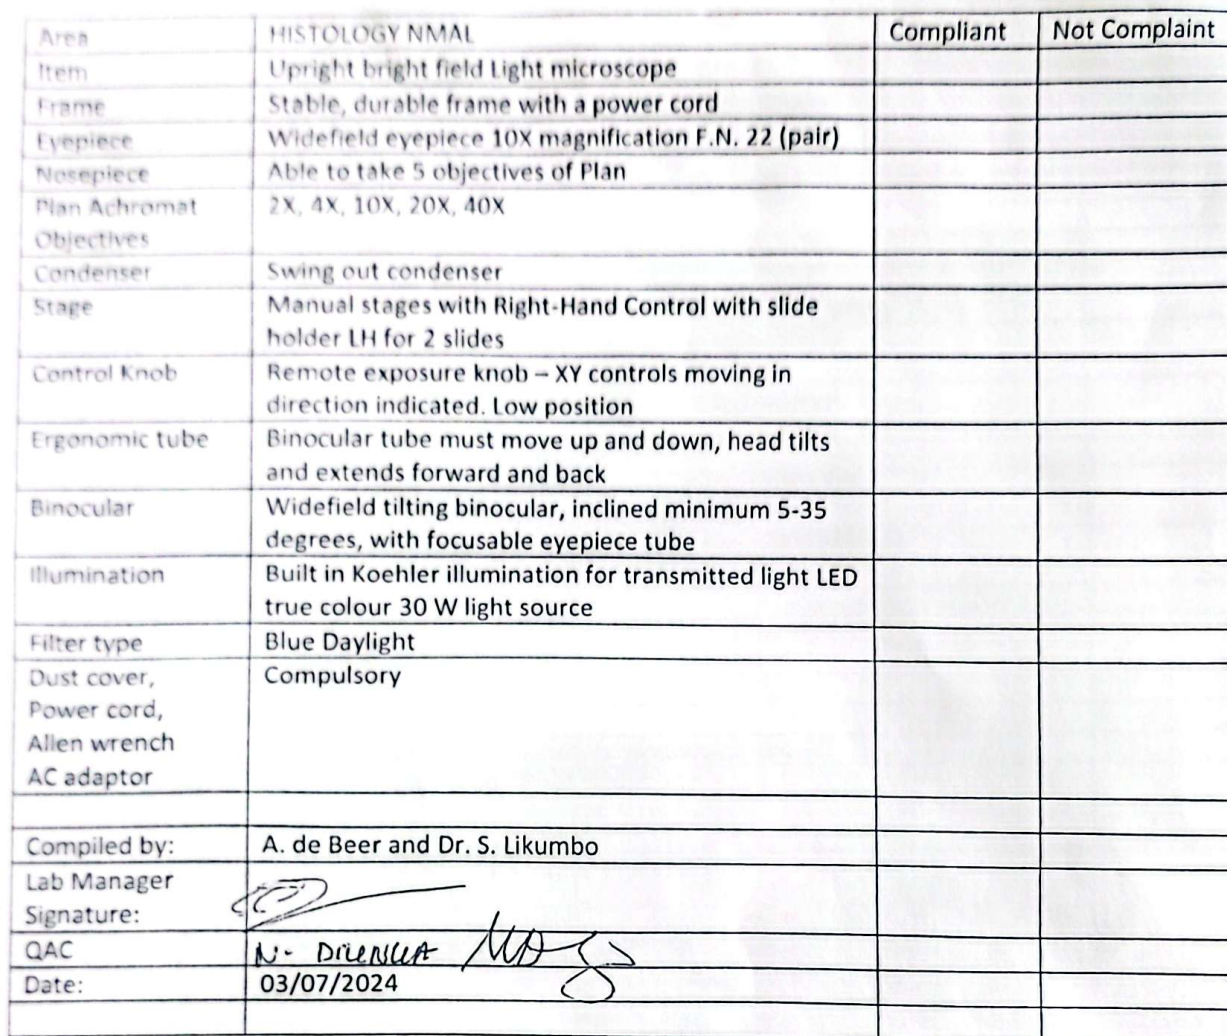 Area HISTOLOGY NMAL Compliant Not Complaint
Item Upright bright field Light microscope
Frame Stable, durable frame with a power cord
Eyepiece Widefield eyepiece 10X magnification F.N. 22 (pair)
Nosepiece Able to take 5 objectives of Plan
Plan Achromat 2X, 4X, 10X, 20X, 40X
Objectives
Condenser Swing out condenser
Stage Manual stages with Right-Hand Control with slide
holder LH for 2 slides
Control Knob Remote exposure knob – XY controls moving in
direction indicated. Low position
Ergonomic tube Binocular tube must move up and down, head tilts
and extends forward and back
Binocular Widefield tilting binocular, inclined minimum 5-35
degrees, with focusable eyepiece tube
Illumination Built in Koehler illumination for transmitted light LED
true colour 30 W light source
Filter type Blue Daylight
Dust cover, Compulsory
Power cord,
Allen wrench
AC adaptor
Compiled by: A. de Beer and Dr. S. Likumbo
Lab Manager
Signature:
QAC N.
Date: 03/07/2024